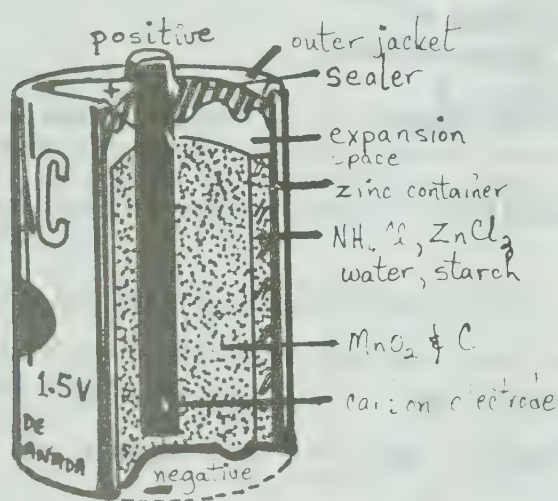 positive
outer jacket
sealer
+
expansion
space
zinc container
C
NH4Cl, ZnCl2
water, starch
MnO2 & C
1.5V
carbon electrode
DE
ANADA
negative